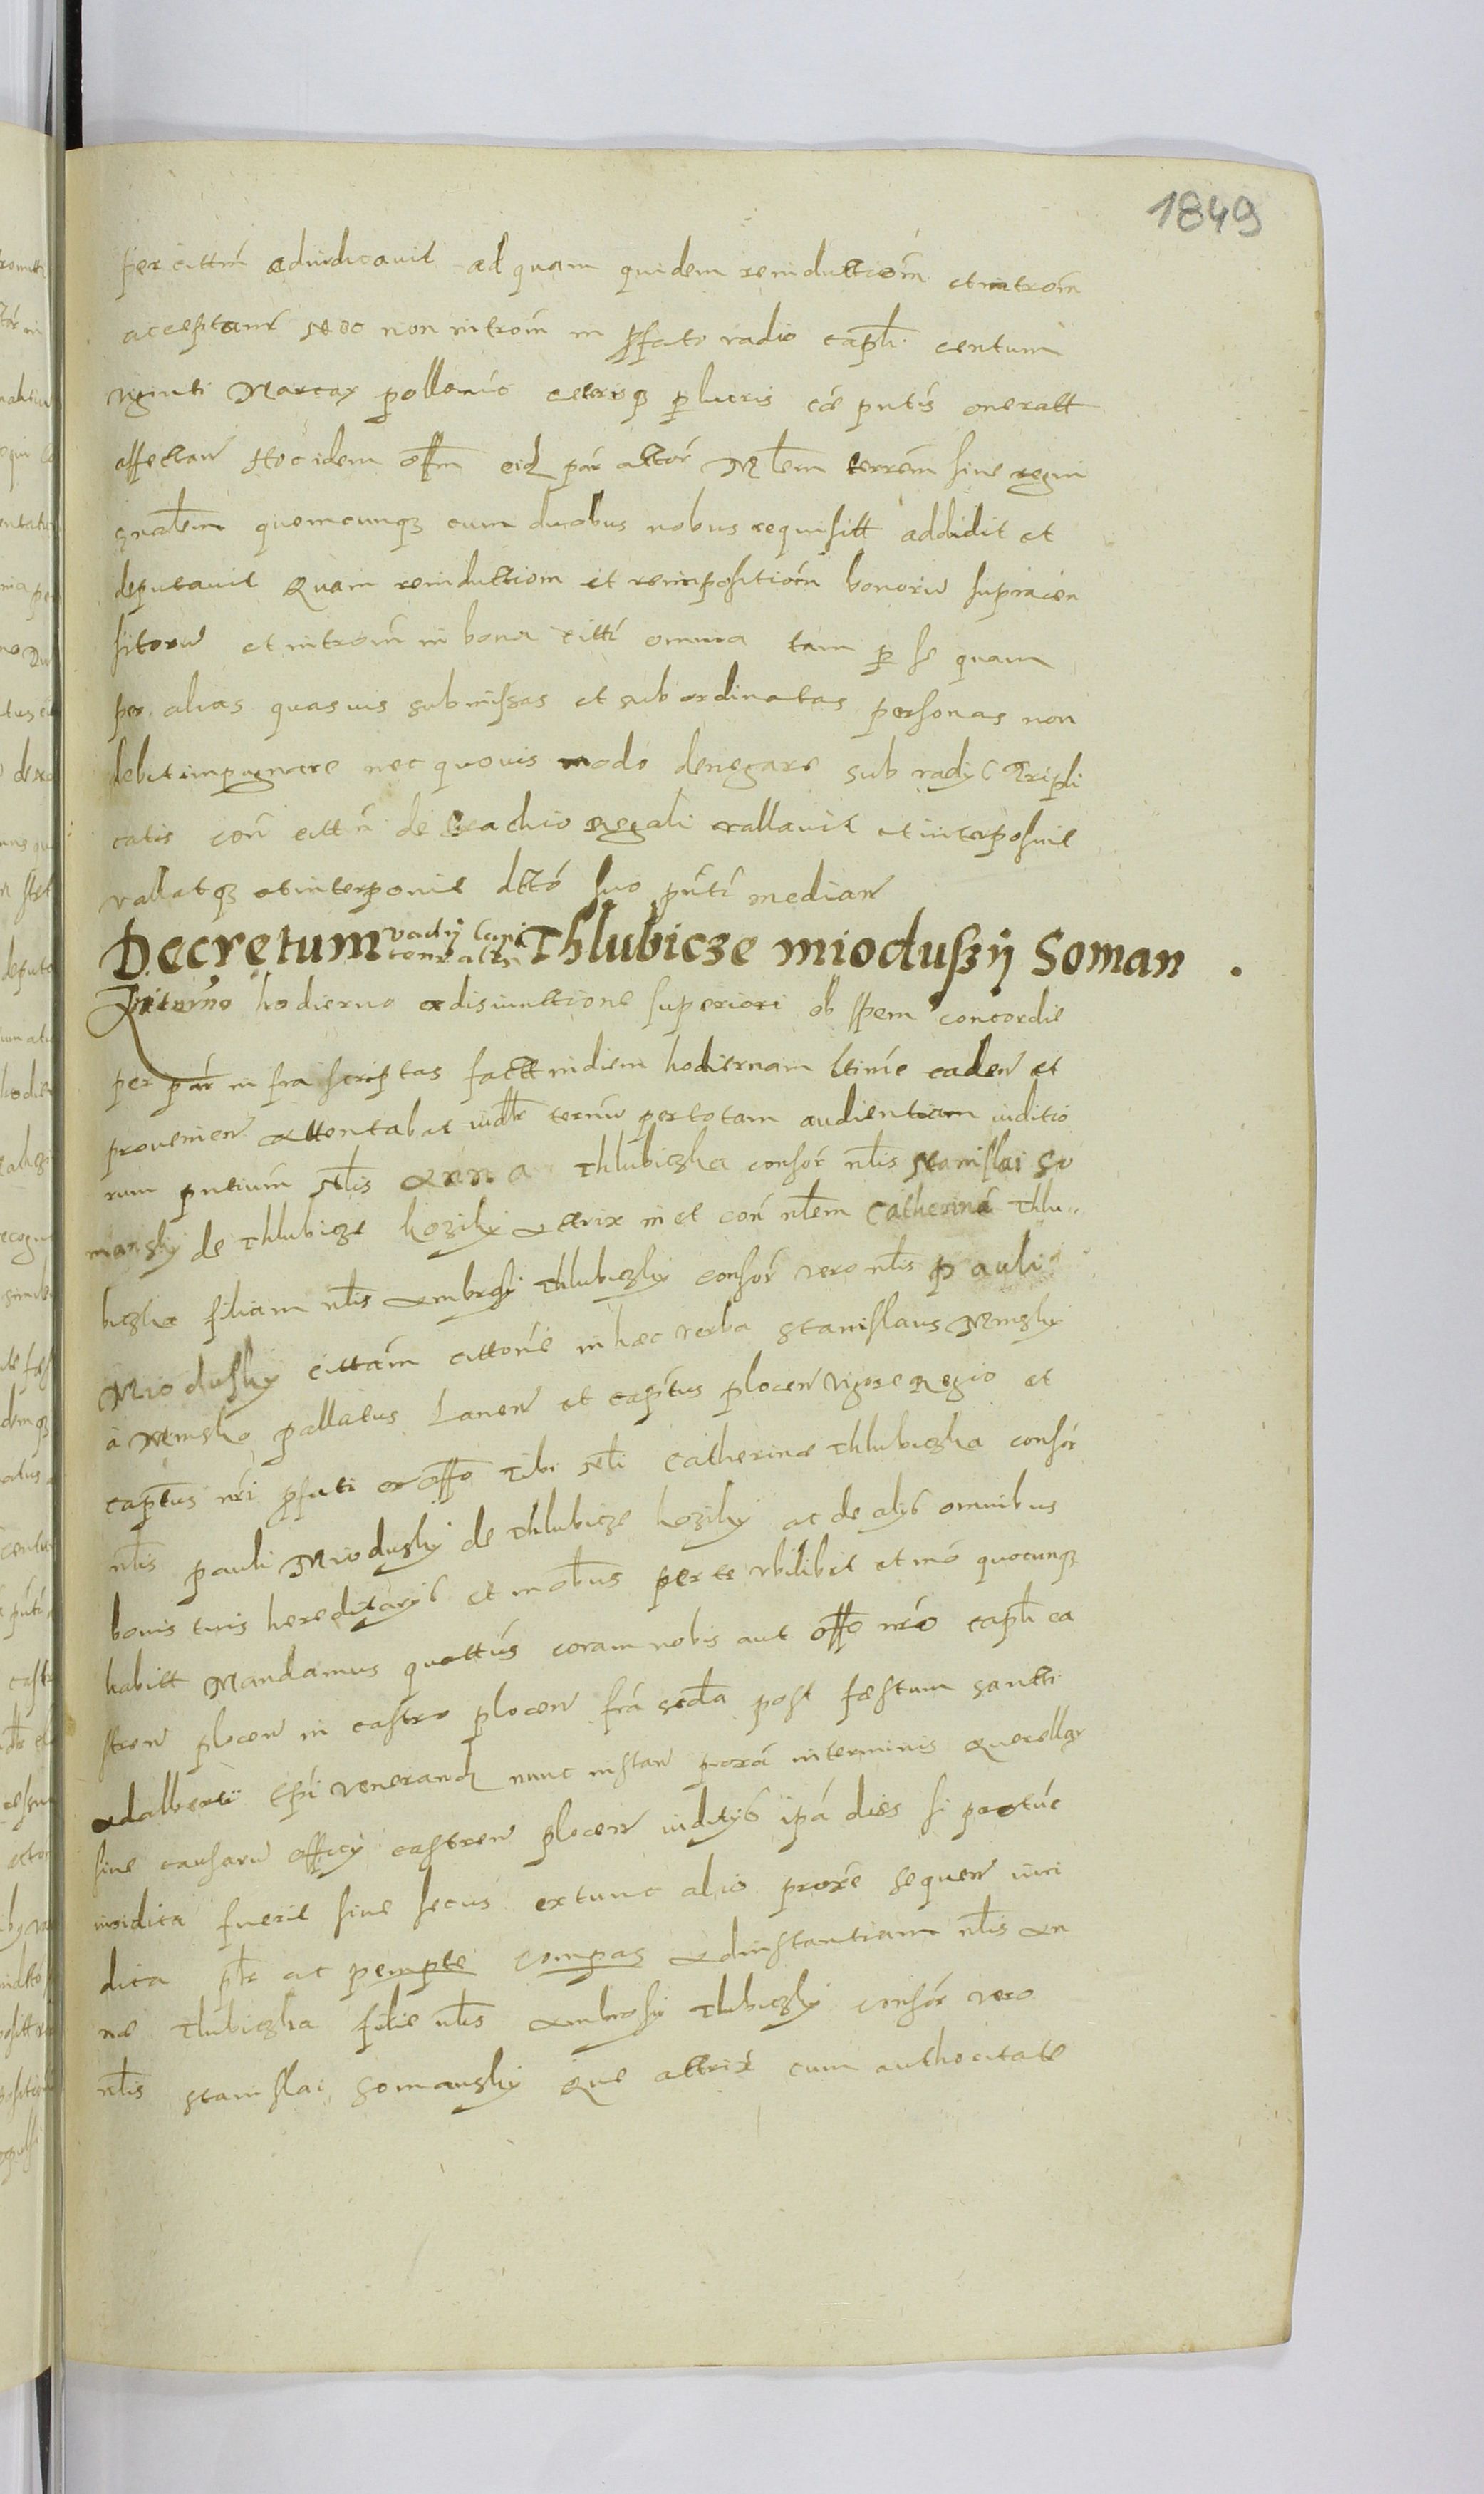 1849
per cittm̄ adiudicavit ad quam quidem reinductiom̄ et introm̄
acceptant nec non introm̄ in p̱fato vadio capłi centum
viginti Marcar pollonić ceterisqȝ p̱ lucris cā pntīs oneratt
affectan̄ Hoc idem offm̄ eidȝ par actor̄ Młem terrem̄ sive regni
gnałem quemcunqȝ cum duobus nobus requisitt addidit et
deputavit Quam reinductiom̄ et reimpositiom̄ bonoru supracen
sitoru et introm̄ in bona cittī omnia tam p̱ se quam
per alias quasuis submissas et subordinatas personas non
debit impugnare nec quovis modo denegare sub vadys Tripli
catis con̄ cittn̄ de brachio regali vallavit et interposuit
vallatqȝ et interponit dttō suo pn̄tī median̄
Decretum vadij lani Thlubicze mioduszij Soman
In termo hodierno ex disiunctione superiori ob spem concordie
per par̄ infra scriptas factt in diem hodiernam ltimē caden̄ et
provenien̄ Attentabat iudłr termu per totam audientiam iuditio
rum pntium̄ Nłis Anna Thlubiczka consor̄ nłis Stanislai So
mansky de Thlubicze kozihy Actrix in et con̄ nłem Catherinā Thlu
biczka filiam nłis Ambrosy Thlubiczky consor̄ vero nłis pauli
Miodusky cittam̄ cittonē in hæc verba Stanislaus Nemsky
a Nemsko pallatus Lanen̄ et captus plocen̄ vigore Regio et
captus nr̄i p̱fati ex offo Tibi Nłi Catherinæ Thlubiczka consor̄
nłis pauli Miodusky de Thlubicze kozihy ac de alys omnibus
bonis tuis hereditarys et mobus per te ubilibet et mō quocunqȝ
habitt Mandamus quattūs coram nobis aut offo nr̄o capłi ca
stren̄ plocen̄ in castro plocen̄ fr̄a scd̄a post festum sancti
Adalberti Epī venerandȝ nunc instan̄ proxā in terminis Querellar
sive causaru officy castren̄ plocen̄ iuditys ipā dies si protūc
iuridica fuerit sive secus extunc alio proxē sequen̄ iuri
dica płr ac pempte compas Ad instantiam nłis An
næ Tlubiczka filie nłis Ambrosy Tlubiczky consor̄ vero
nłis Stanislai Somansky Que actrix cum authoritate